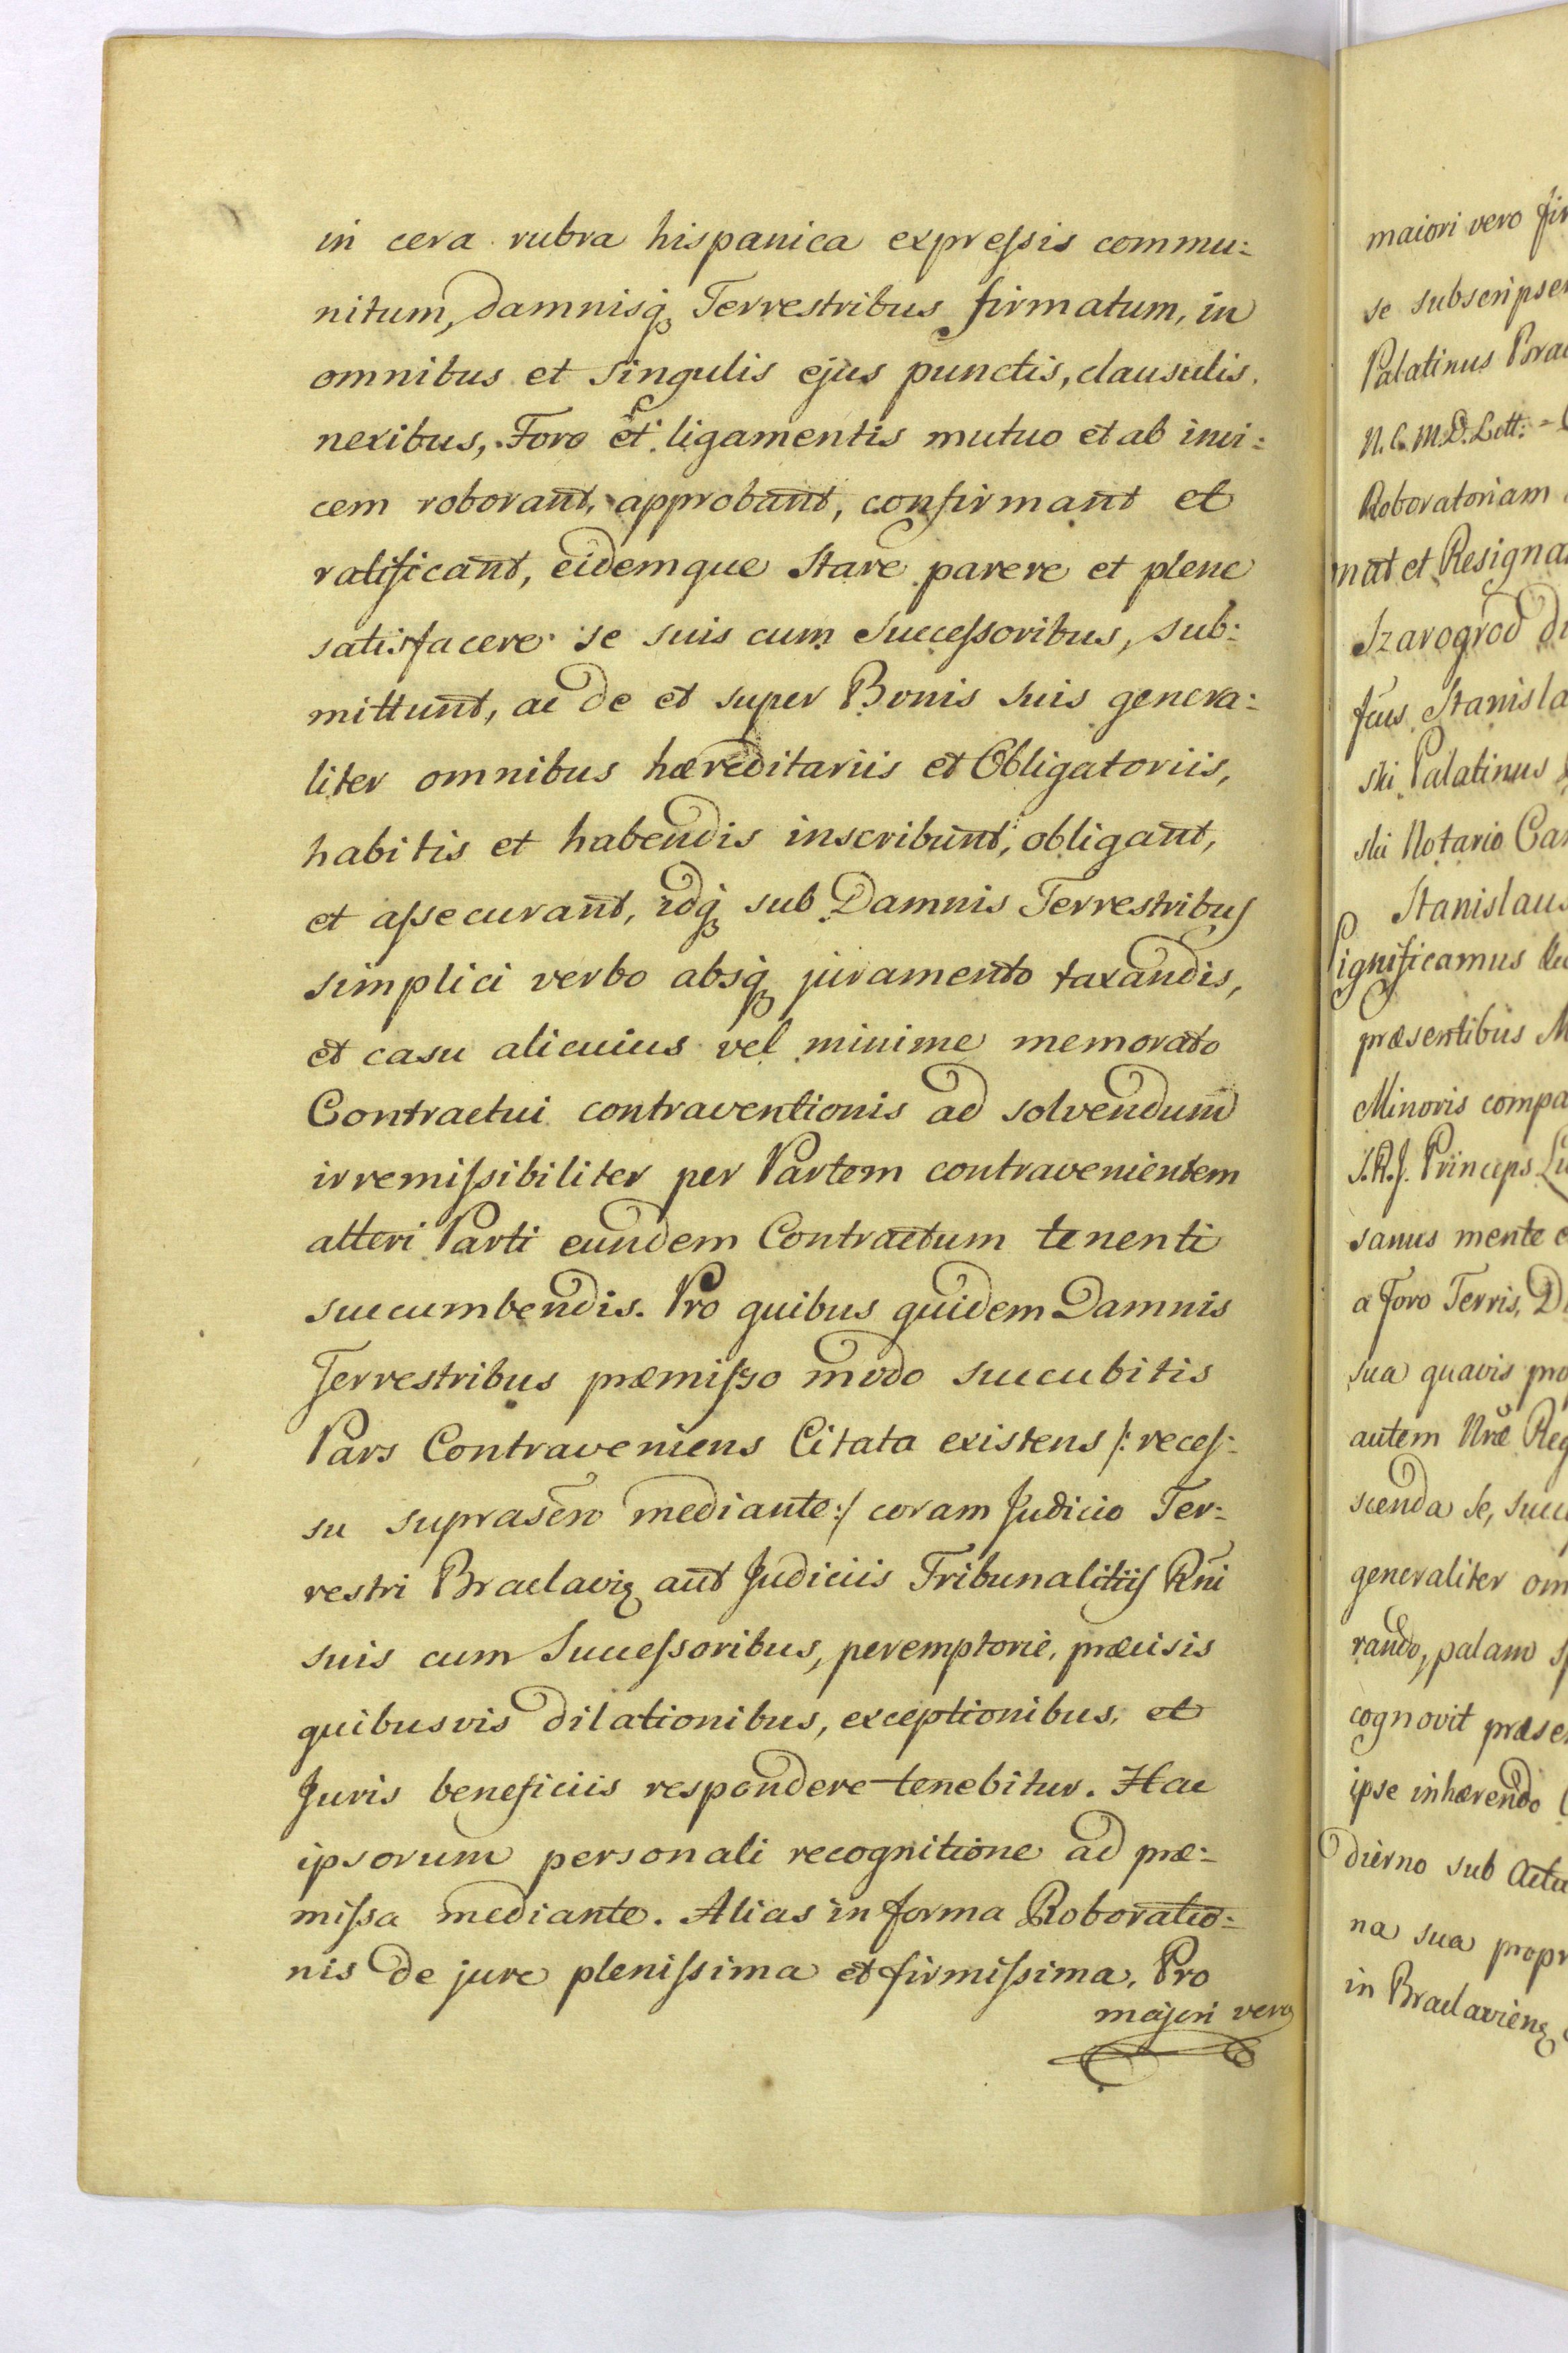 in cera rubra hispanica expreſsis commu:
nitum, damnisq́ꝫ Terrestribus firmatum, in
omnibus et singulis ejus punctis, clausulis,
nexibus, Foro et ligamentis mutuo et ab invi:
cem roborant, approbant, confirmant et
ratificant, eidemque stare parere et plene
satisfacere se suis cum Succeſsoribus, sub:
mittunt, ac de et super Bonis suis genera:
liter omnibus hæreditariis et Obligatoriis,
habitis et habendis inscribunt, obligant,
et aſsecurant, idq́ꝫ sub Damnis Terrestribus
simplici verbo absq́ꝫ juramento taxandis,
et casu alicuius vel minime memorato
Contractui contraventionis ad solvendum
irremiſsibiliter per Partem contravenientem
alteri Parti eundem Contractum tenenti
succumbendis. Pro quibus quidem Damnis
Terrestribus præmiſso modo succubitis
Pars Contraveniens Citata existens /: receſ:
su suprasēn mediante :/ coram Judicio Ter:
restri Braclavieꝫ aut Judiciis Tribunalitiis Rn̄i
suis cum Succeſsoribus, peremptorie, præcisis
quibusvis dilationibus, exceptionibus, et
Juris beneficiis respondere tenebitur. Hac
ipsorum personali recognitione ad præ:
miſsa mediante. Alias in forma Roboratio:
nis de jure pleniſsima et firmiſsima. Pro
majori vero
maiori vero fir
se subscripser
Palatinus Brac
N. C. M. D. Litt: =
Roboratoriam
mat et Resigna
Szarogrod di
fcus Stanisla
ski Palatinus
ski Notario Ca
Stanislaus
Significamus
præsentibus M
Minoris compa
S. R. J. Princeps Lu
sanus mente e
a Foro Terris, D
sua quavis pro
autem Nræ Reg
scenda se, succ
generaliter om
rando, palam s
cognovit præse
ipse inhærendo C
dierno sub Actu
na sua propr
in Braclavienꝫ